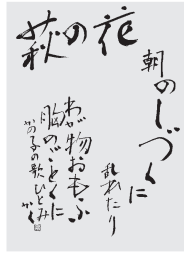 萩の花
朝のしづくに
乱れたり
わが物おもふ
胸のごとくに
かの子の歌 ひとみ
かく